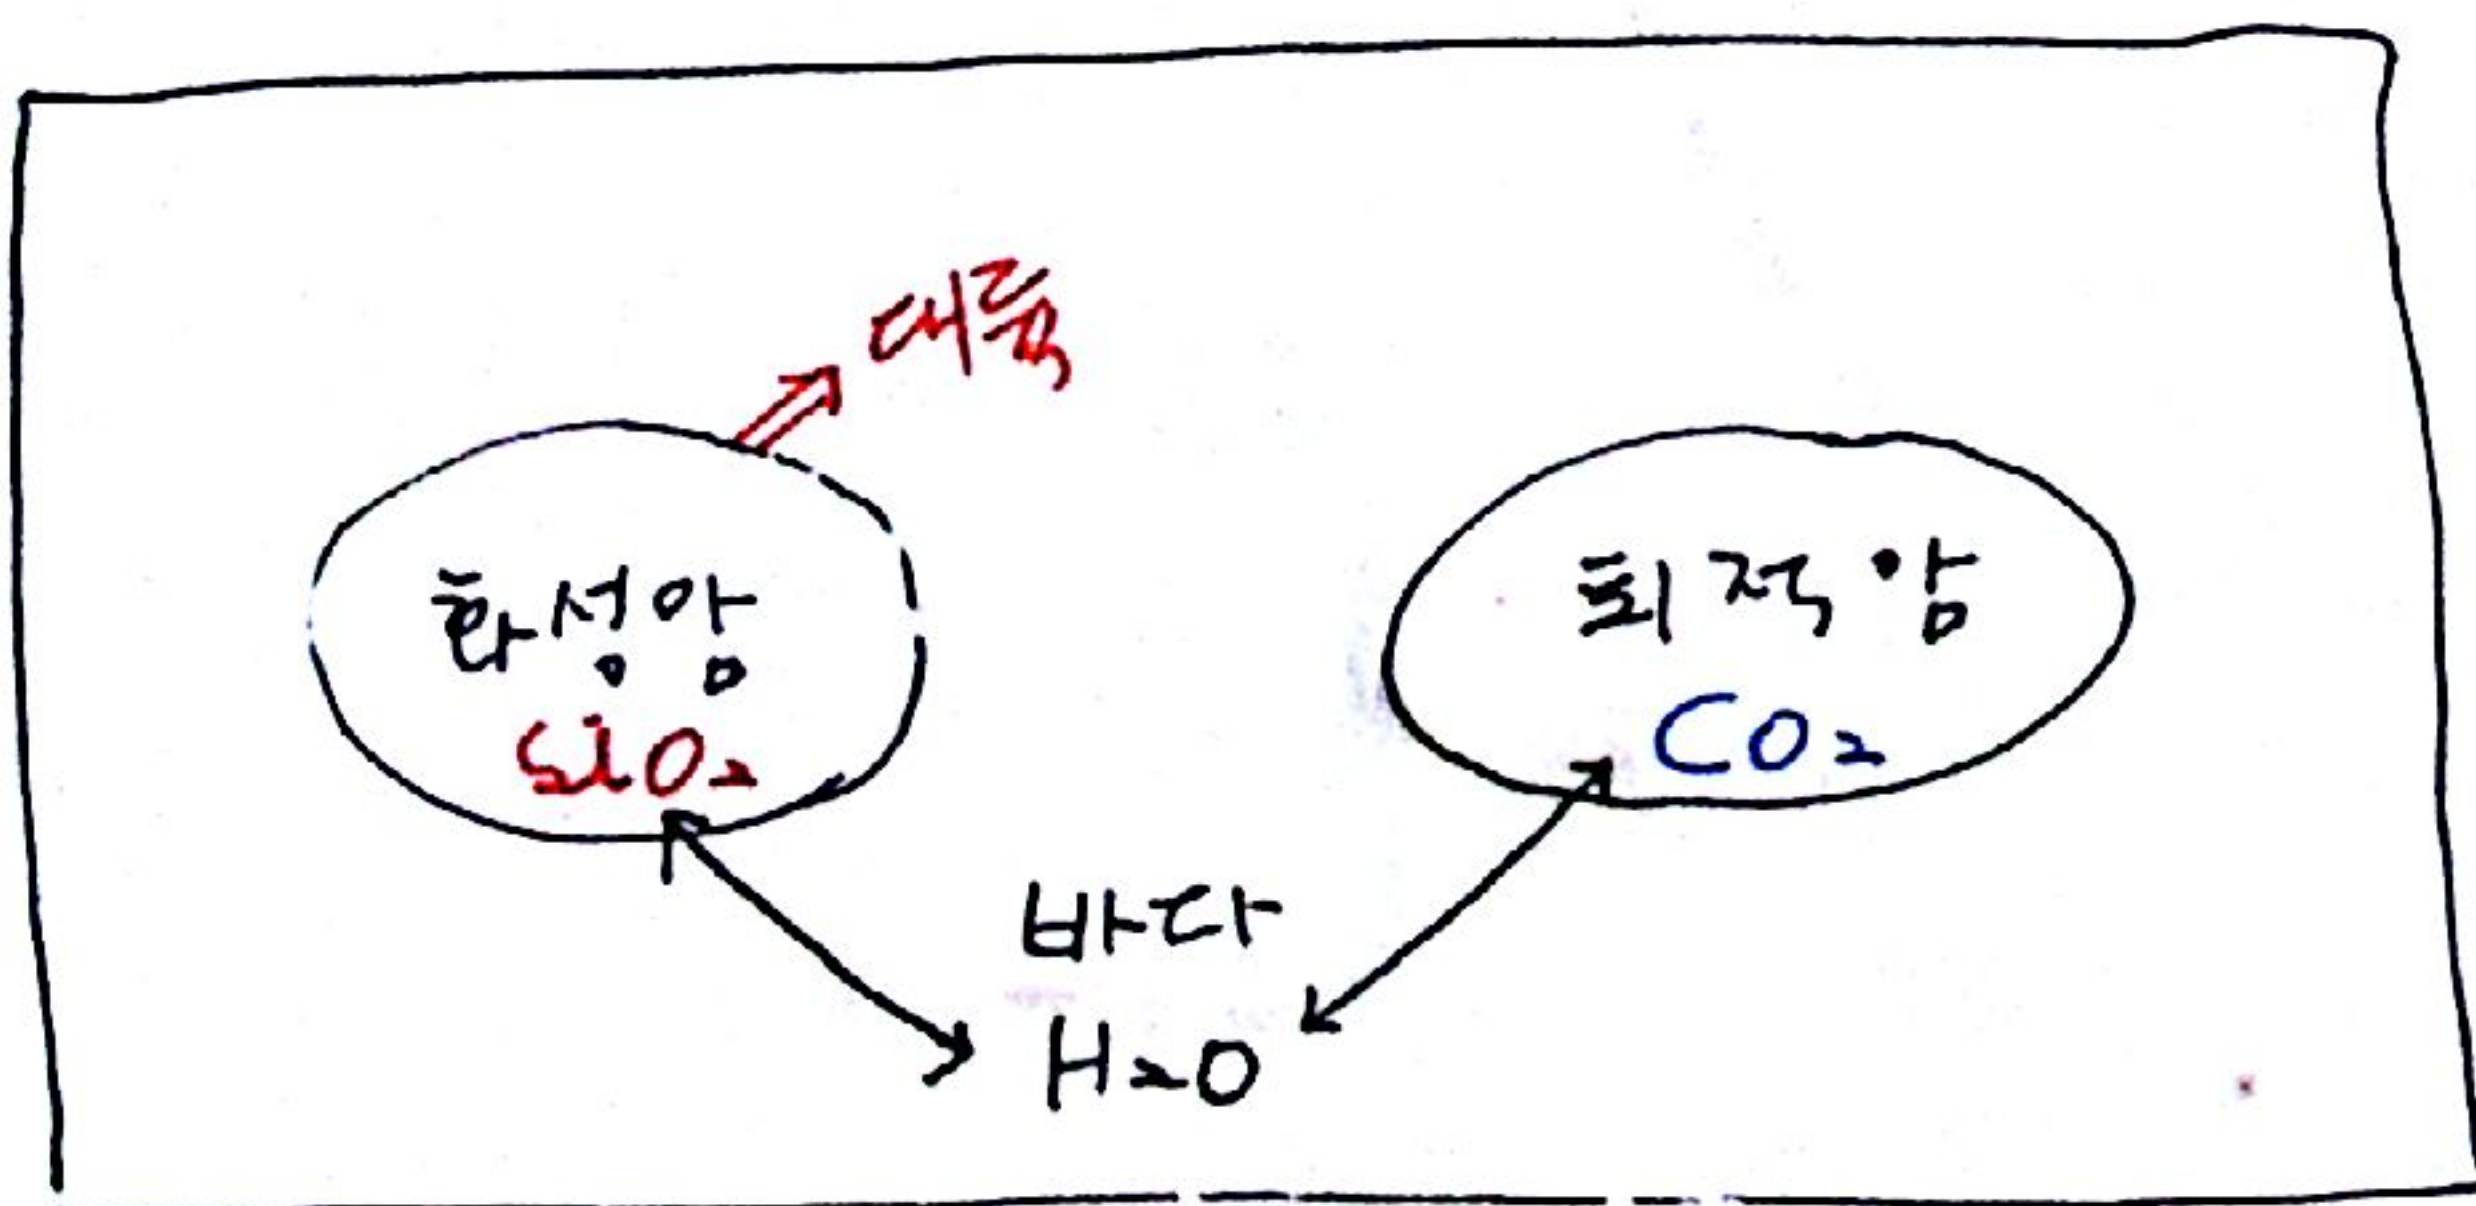 대륙
화성암
SiO₂
퇴적암
CO₂
바다
H₂O